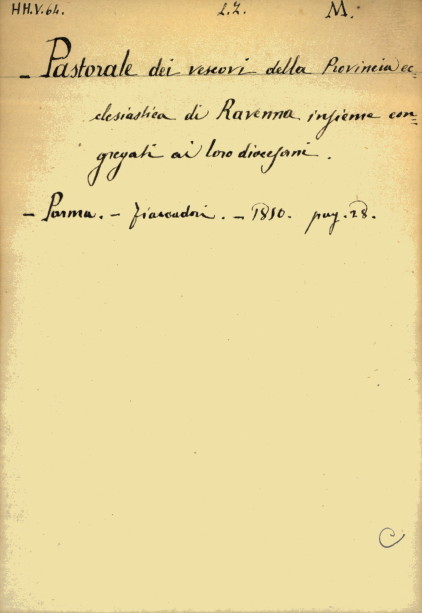 HH.V.64. L.Z. M.
- Pastorale dei vescovi della Provincia ec=
clesiastica di Ravenna insieme con=
gregati ai loro diocesani.
- Parma. - Fiaccadori. - 1850. pag. 28.
C